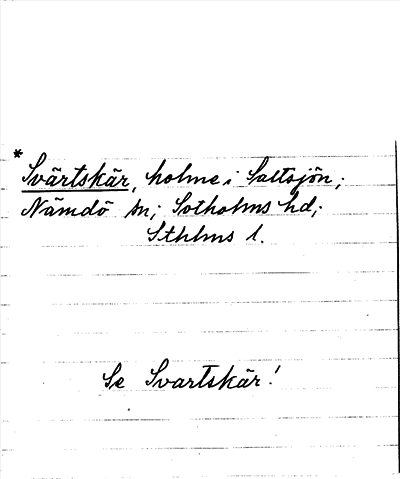 *
Svärtskär, holme i Saltsjön;
Nämdö sn; Sotholms hd;
Sthlms l.
Se Svartskär!